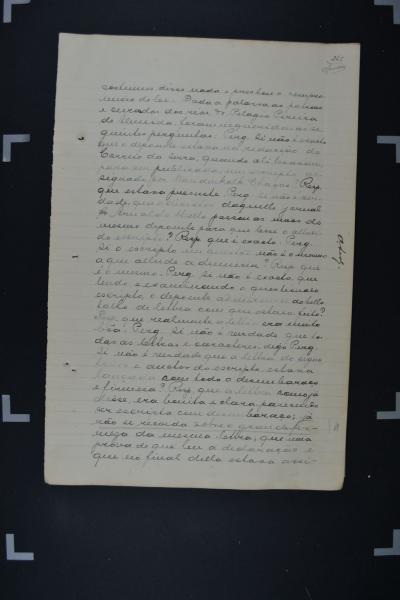 costumes disse nada e prestou o compro-
misso da lei. Dada a palavra ao patrono
e curador dos réos Dr. Pelagio Pereira
de Almeida, foram requeridas as se-
guintes perguntas: Perg. Si não é exacto
que o depoente estava na redacção do
Correio da Serra, quando ali levaram
para ser publicado, um escripto as-
signado por Resp.
que estava presente. Perg. si não é ver-
dade que o daquelle jornal
Dr. Arnaldo Mello passou ás mãos do
mesmo depoente para que lesse o
do escripto? Resp. que é exacto. Perg.
Si o escripto em não é o mesmo
a que allude a denuncia? Resp. que
é o mesmo. Perg. Si não é exacto que
lendo e examinando o questionado
escripto, o depoente do bello
talho de lettra com que estava feito?
Resp. que realmente a lettra era muito
bôa. Perg. Si não é verdade que to-
das as lettras e caracteres, digo Perg.
Si não é verdade que a lettra do signa-
tario e auctor do escripto, estava
lançada com todo o desembaraço
e firmeza? Resp. que a lettra como já
disse, era bonita e clara parecendo
ser escripta com desembaraço; já
não se recorda sobre o
da mesma lettra, que uma
prova de que leu a declaração é
que no final della estava assi-